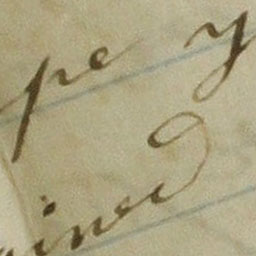 pe y
ained